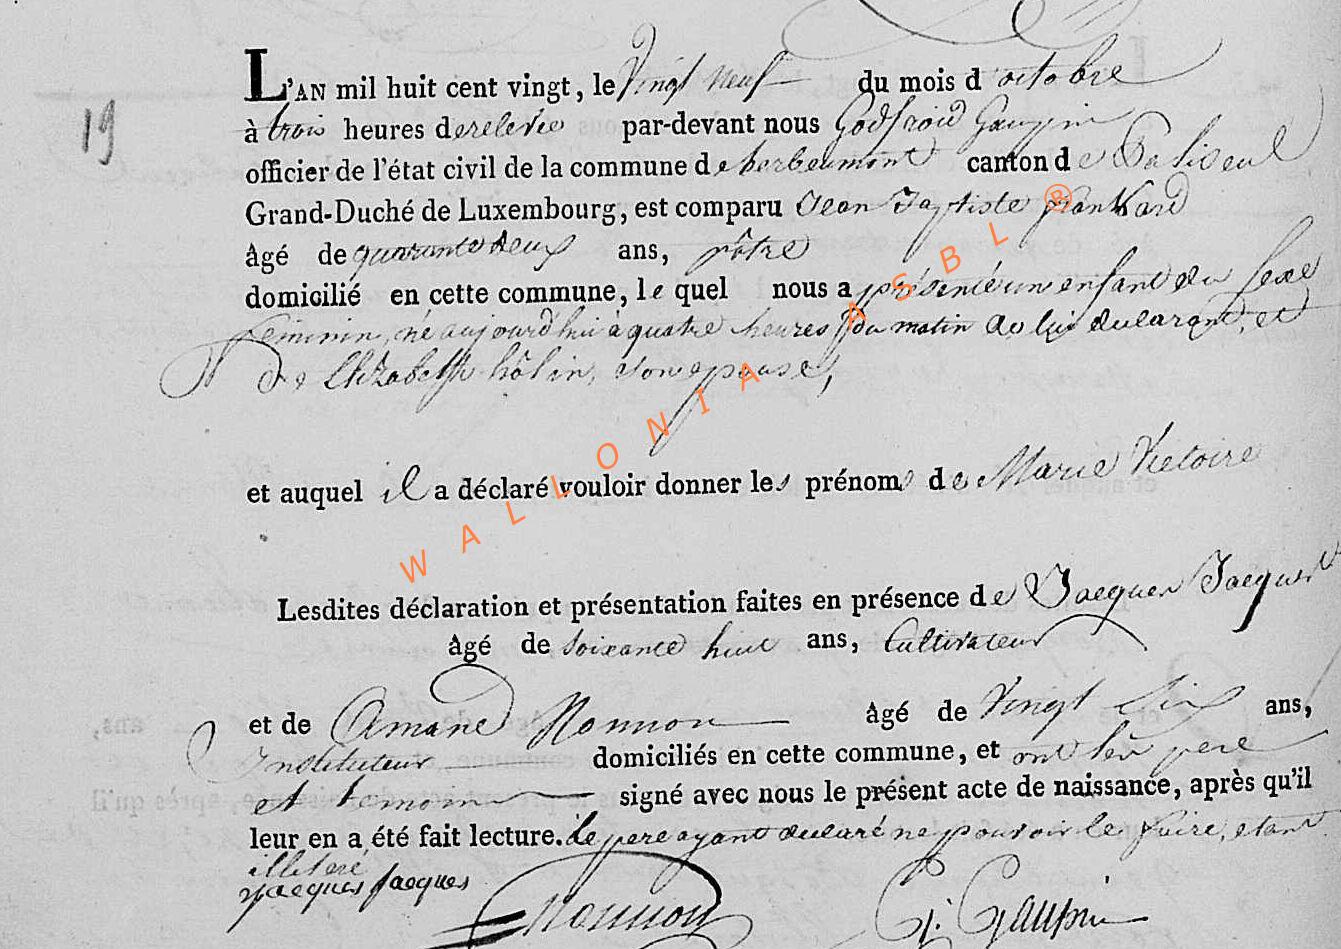 19
L'AN mil huit cent vingt, le Vingt neuf du mois d'octobre
à trois heures de relevée par-devant nous Godfroid Gauspin
officier de l'état civil de la commune de herbeumont canton de Paliseul
Grand-Duché de Luxembourg, est comparu Jean Baptiste frankard
âgé de quarante deux ans, pâtre
domicilié en cette commune, le quel nous a présenté un enfant du sexe
feminin, né aujourd'hui à quatre heures du matin de lui declarant, et
de Elizabeth hôlin, son epouse,
et auquel il a déclaré vouloir donner les prénoms de Marie Victoire
Lesdites déclaration et présentation faites en présence de Jacques Jacques
âgé de soixante huit ans, Cultivateur
et de Amand Nonnon âgé de Vingt six ans,
Instituteur domiciliés en cette commune, et ont les pere
et temoins signé avec nous le présent acte de naissance, après qu'il
leur en a été fait lecture. le pere ayant declaré ne pouvoir le faire, etant
illeteré
Jacques Jacques Nonnon G. Gauspin
WALLONIA ASBL ®